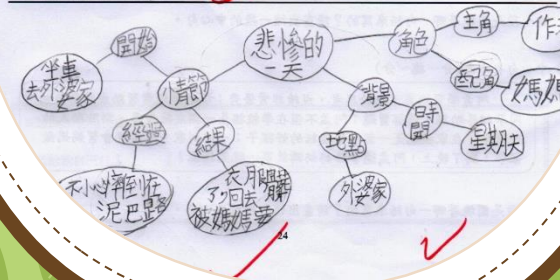 悲慘的
一天
角色
主角
作
配角
媽媽
背景
時間
星期天
地點
外婆家
情節
開始
坐車
去外婆家
經過
不小心摔到在
泥巴路
結果
衣服髒
了,回去
被媽媽罵
24